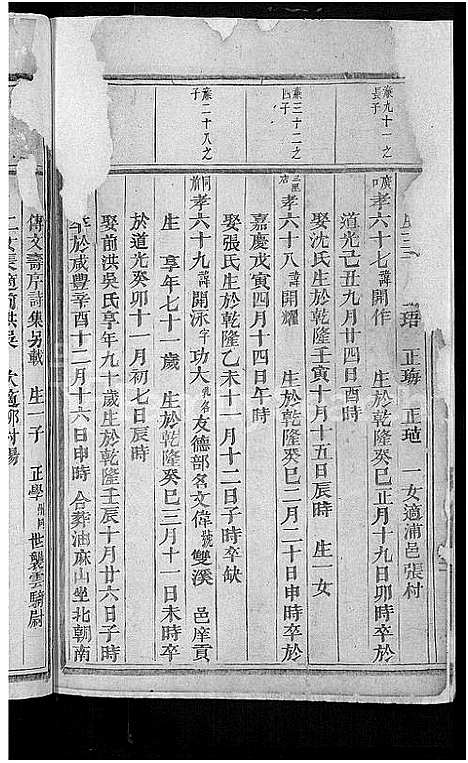 珸 正瑦 正琩 一女適浦邑張村
慕九十一之長子
廣口 孝六十七 諱開作 生於乾隆癸巳正月十九日卯時卒於
道光己丑九月廿四日酉時
娶沈氏生於乾隆壬寅十月十五日辰時 生一女
慕三十二之四子
三里店 孝六十八 諱開耀 生於乾隆癸巳二月二十日申時卒於
嘉慶戊寅四月十四日午時
娶張氏生於乾隆乙未十一月十二日子時卒缺
慕二十八之子
同前 孝六十九 諱開泳 字功大 乳名友德 部名文偉 號雙溪 邑庠貢
生 享年七十一歲 生於乾隆癸巳三月十一日未時卒
於道光癸卯十一月初七日辰時
娶前洪吳氏享年九十歲生於乾隆壬辰十月廿六日子時
卒於咸豐辛酉十二月十六日申時 合葬油麻山坐北朝南
傳文壽序詩集另載 生一子 正學 世襲雲騎尉
二女長適前洪吳 次適鄉村楊